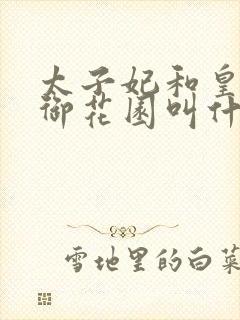 太子妃和皇
御花园叫什
雪地里的白菜